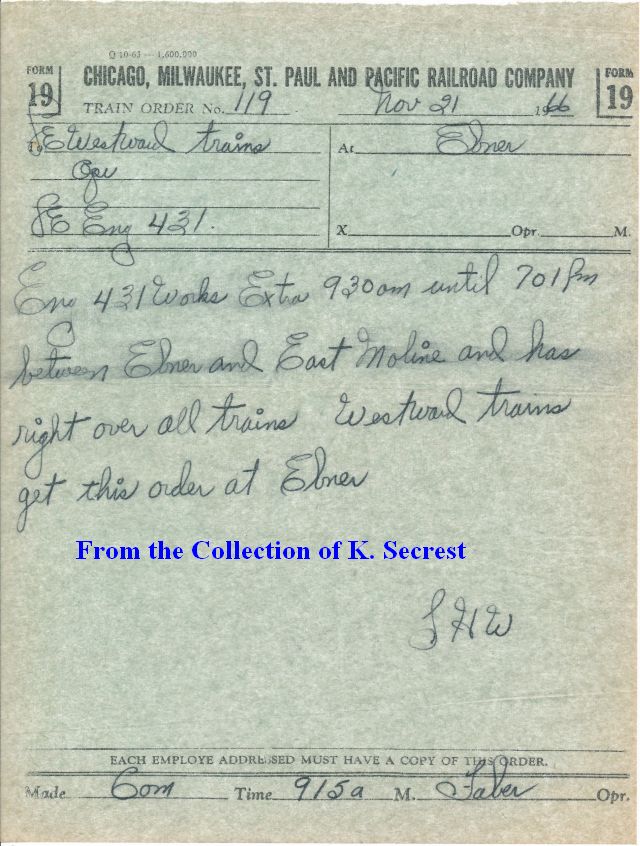 Q 10-63 — 1,600,000
FORM 19 CHICAGO, MILWAUKEE, ST. PAUL AND PACIFIC RAILROAD COMPANY FORM 19
TRAIN ORDER No. 119 Nov 21 1966
To E Westward trains At Ebner
Opr
E Eng 431. X Opr. M.
Eng 431 Works Extra 930am until 701Pm
between Ebner and East Moline and has
right over all trains Westward trains
get this order at Ebner
From the Collection of K. Secrest
EACH EMPLOYE ADDRESSED MUST HAVE A COPY OF THIS ORDER.
Made Com Time 915a M. Faber Opr.